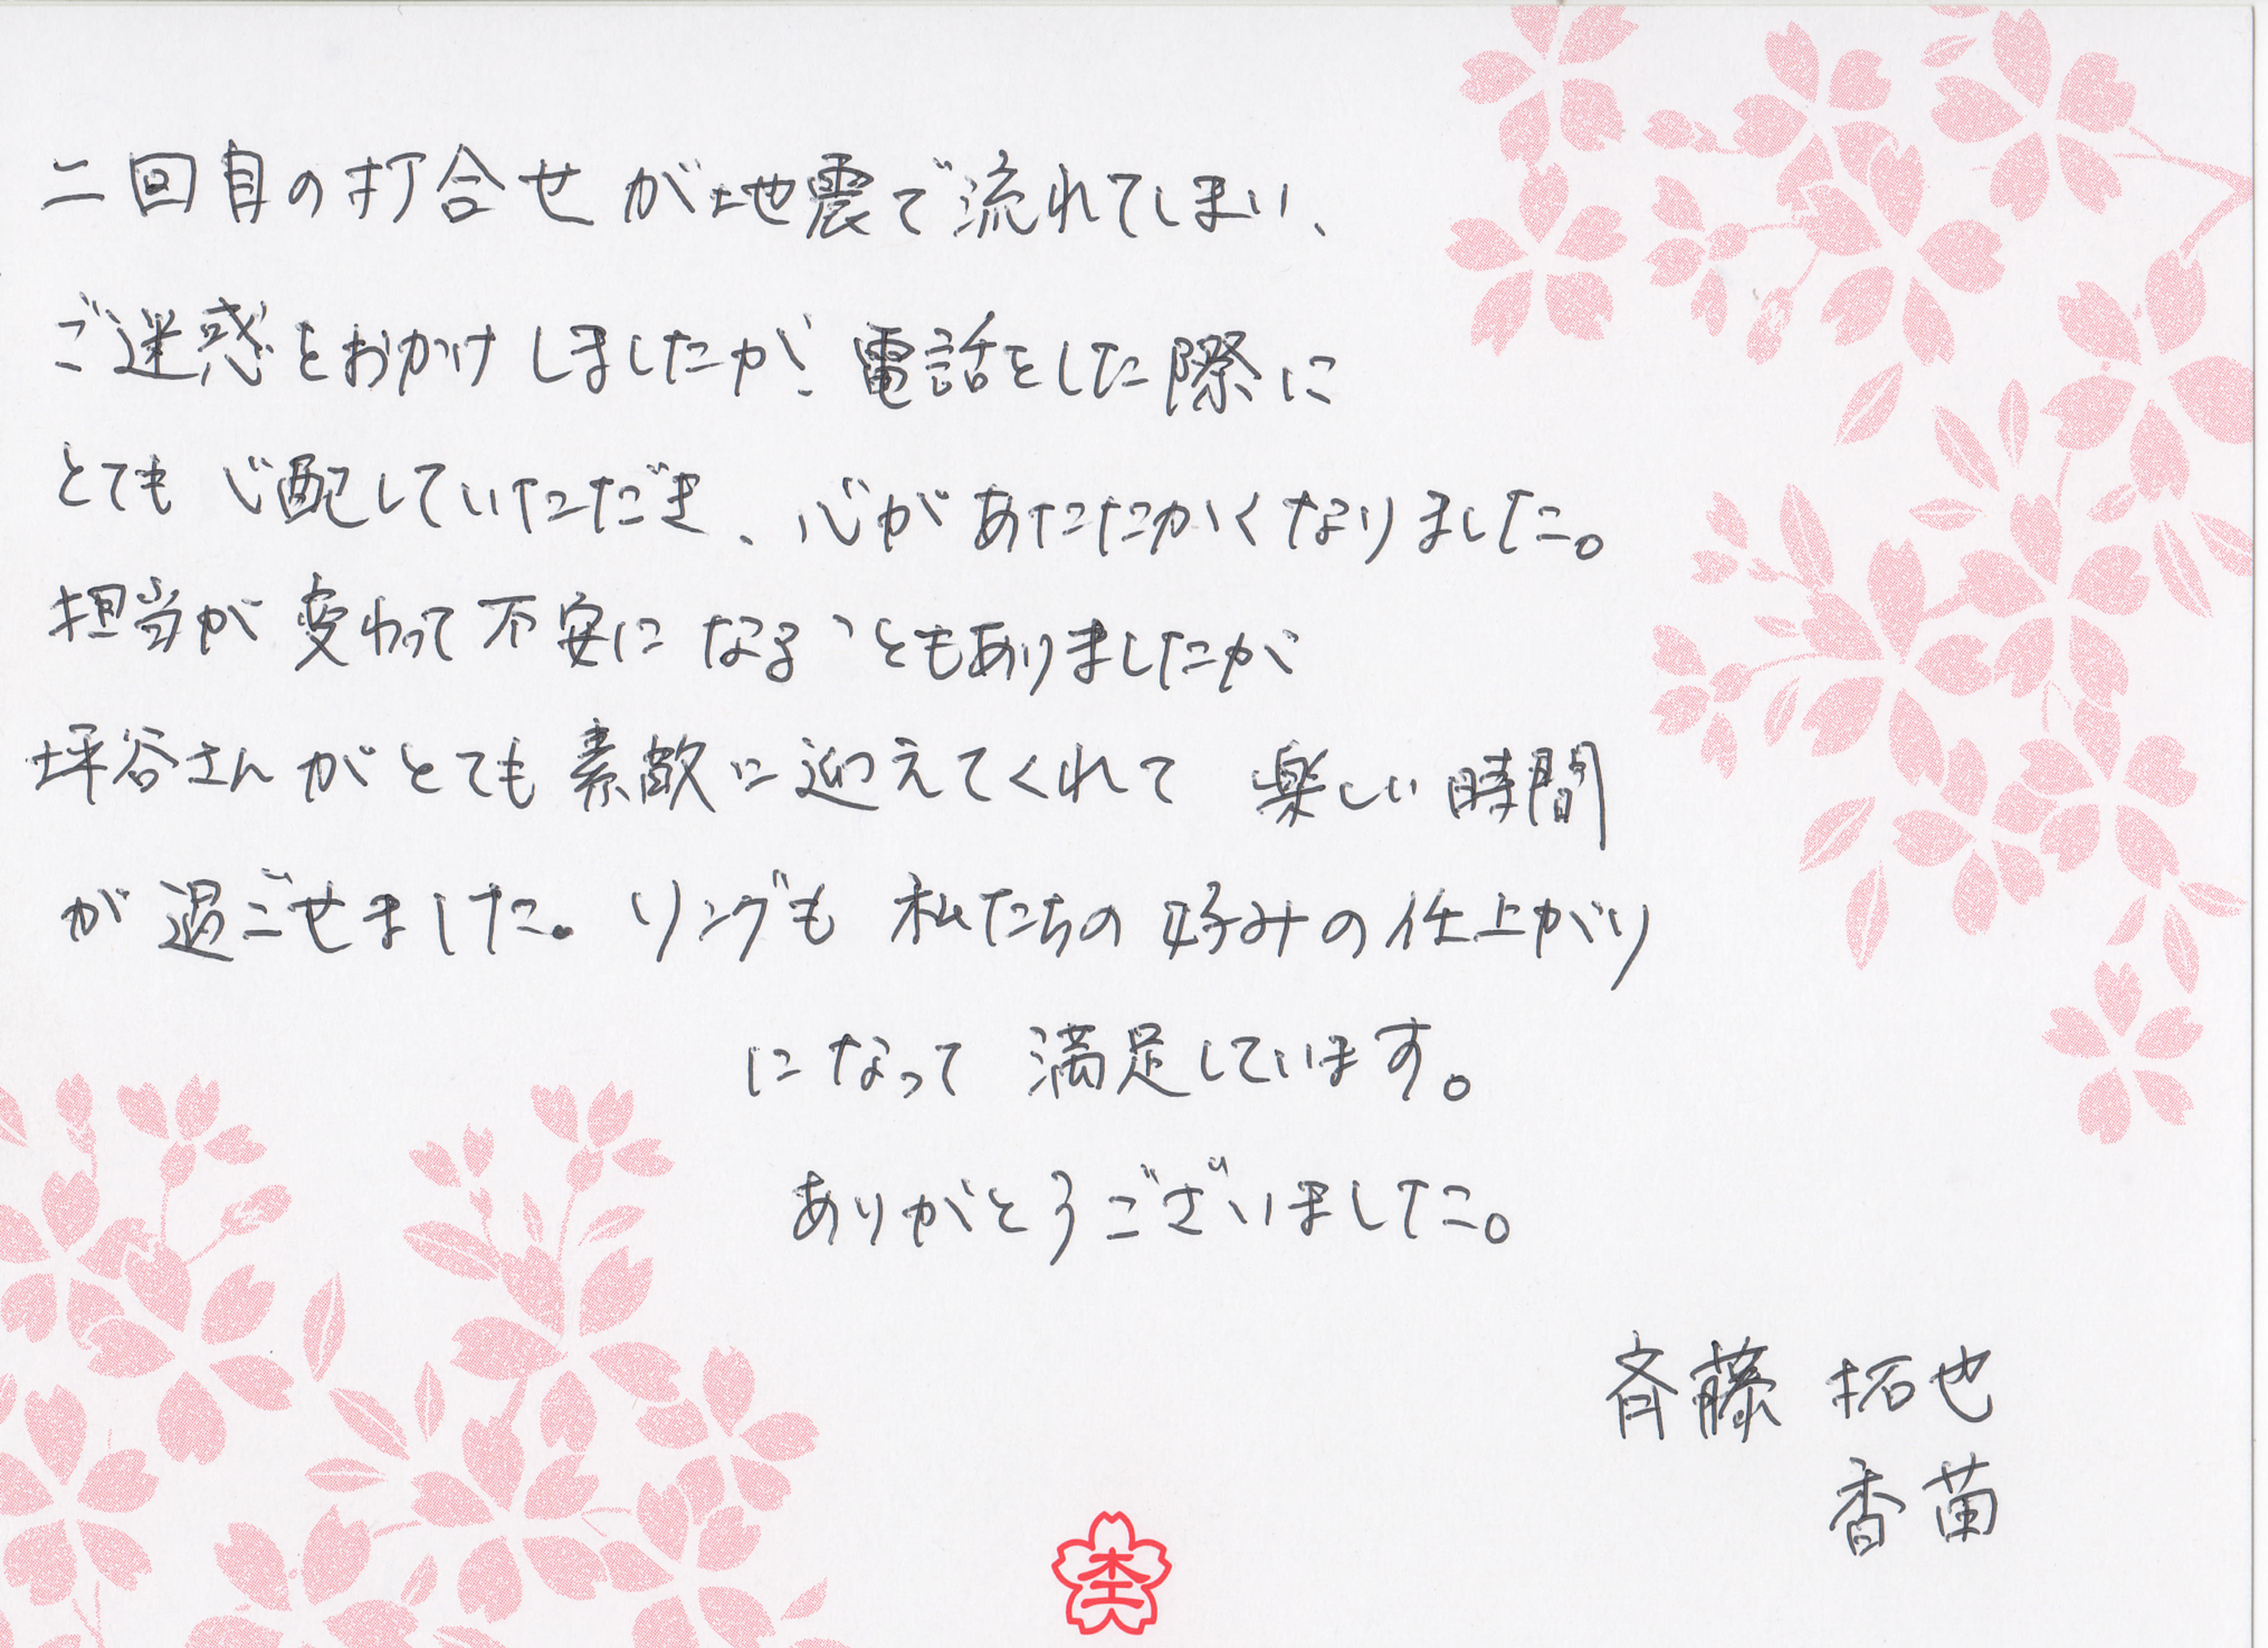 二回目の打合せが地震で流れてしまい、
ご迷惑をおかけしましたが、電話をした際に
とても心配していただき、心があたたかくなりました。
担当が変わって不安になることもありましたが
坪谷さんがとても素敵に迎えてくれて 楽しい時間
が過ごせました。リングも 私たちの好みの仕上がり
になって 満足しています。
ありがとうございました。
斉藤 拓也
香苗
杢